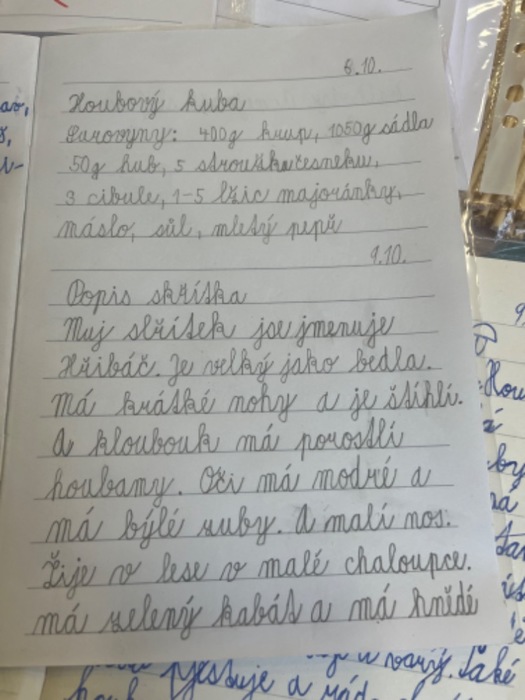 8.10.
Houbový kuba
Suroviny: 400g krup, 1050g sádla
50g hub, 5 stroužkačesneku,
3 cibule, 1-5 lžic majoránky,
máslo, sůl, mletý pepř
9.10.
Popis skřítka
Muj slřítek jse jmenuje
Hřibáč. Je velký jako bedla.
Má krátké nohy a je štíhlí.
A kloubouk má porostlí
houbamy. Oči má modré a
má býlé zuby. A malí nos.
Žije v lese v malé chaloupce.
má zelený kabát a má hnědé